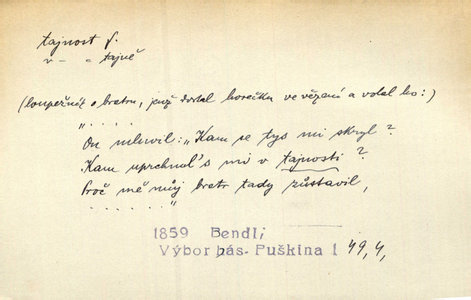 tajnost f.
v – „ tajně
(loupežník o bratru, jenž dostal horečku ve vězení a volal ho:)
„ . . . .
On mluvil: „Kam se tys mi skryl?
Kam uprchnul's mi v tajnosti?
Proč mě můj bratr tady zůstavil,
. . . . . . "
1859 Bendl,
Výbor bás. Puškina 1 49,4,